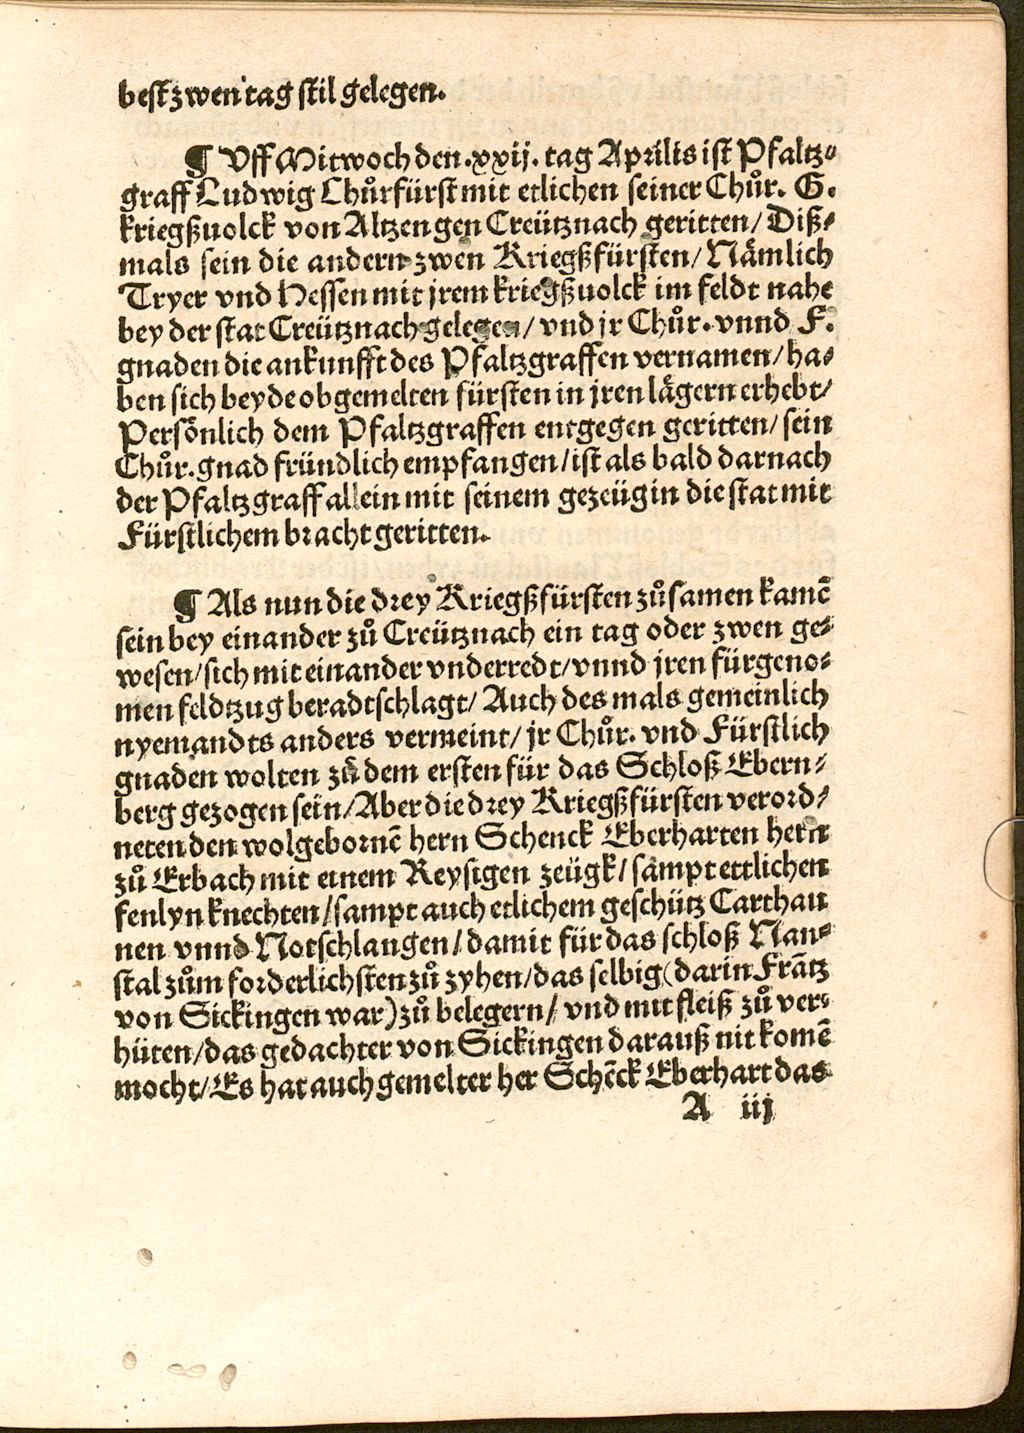 best zwen tag stil gelegen.
¶ Vff Mitwoch den .xxij. tag Aprilis ist Pfaltz⸗
graff Ludwig Chůrfürst mit etlichen seiner Chůr. G.
kriegßuolck von Altzen gen Creütznach geritten/ Diß⸗
mals sein die andern zwen Kriegßfürsten/ Nämlich
Tryer vnd Hessen mit jrem kriegßuolck im feldt nahe
bey der stat Creütznach gelegen/ vnd jr Chůr. vnnd F.
gnaden die ankunfft des Pfaltzgraffen vernamen/ ha⸗
ben sich beyde obgemelten fürsten in jren lägern erhebt/
Persönlich dem Pfaltzgraffen entgegen geritten/ sein
Chůr. gnad fründlich empfangen/ ist als bald darnach
der Pfaltzgraff allein mit seinem gezeüg in die stat mit
Fürstlichem bracht geritten.
¶ Als nun die drey Kriegßfürsten zůsamen kamē
sein bey einander zů Creütznach ein tag oder zwen ge⸗
wesen/ sich mit einander vnderredt/ vnnd jren fürgeno⸗
men feldtzug beradtschlagt/ Auch des mals gemeinlich
nyemandts anders vermeint/ jr Chůr. vnd Fürstlich
gnaden wolten zů dem ersten für das Schloß Ebern⸗
berg gezogen sein/ Aber die drey Kriegßfürsten verord⸗
neten den wolgebornē hern Schenck Eberharten hern
zů Erbach mit einem Reysigen zeügk/ sampt ettlichen
fenlyn knechten/ sampt auch etlichem geschütz Carthau
nen vnnd Notschlangen/ damit für das schloß Nan⸗
stal zům forderlichsten zů zyhen/ das selbig (darin Frātz
von Sickingen war) zů belegern/ vnd mit fleiß zů ver⸗
hüten/ das gedachter von Sickingen darauß nit komē
mocht/ Es hat auch gemelter her Schēck Eberhart das
A iij